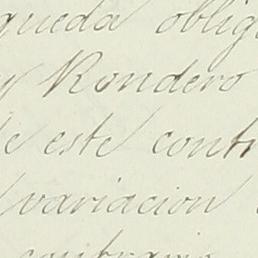 queda oblig
y Rondero
de este contr
variacion
contrario